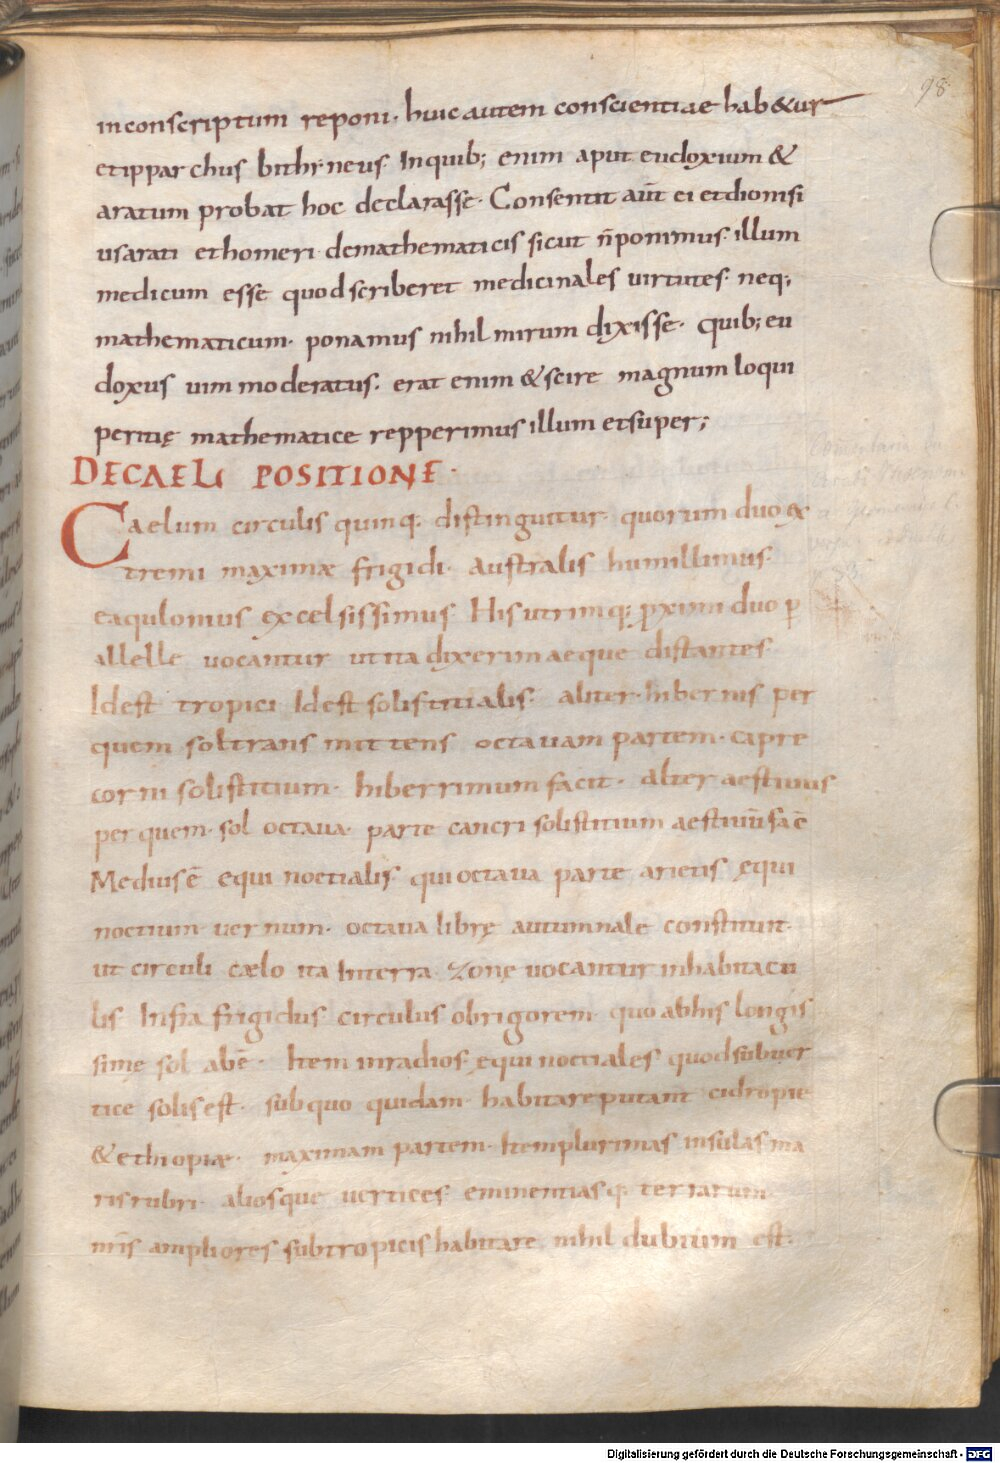 98
inconscriptum reponi· huic autem conscientiae hab&ur
etippar chus bithrneus· Inquib; enim aput eudoxium &
aratum probat hoc declarasse· Consentit aūt ei etdionisi
usarati ethomeri· demathematicis sicut n̄ponimus· illum
medicum esse quodscriberet medicinales virtutes· neq;
mathematicum· ponamus nihil mirum dixisse· quib; eu
doxus uim moderatus· erat enim &scire magnum loqui
peritię mathematice repperimus illum etsuper;
DECAELI POSITIONE·
Caelum circulis quinq; distinguitur· quorum duo ex
tremi maximæ frigidi· australis humillimus·
eaqulonius excelsissimus· His utrimq; p̄ximi duo p
allelle uocantur ut ita dixerim aeque distantes·
Idest tropici Idest solistitialis· aliter·hibernis per
quem soltrans mittens octauam partem· capre
corni solistitium· hiberrimum facit· alter aestiuus
per quem· sol octaua· parte cancri solistitium aestiuū faē
Mediusē equi noctialis· qui octaua parte arietis equi
noctium uernum· octaua librę autumnale constituit·
ut circuli cælo ita Interra zonę uocantur inhabitacu
lis Infra frigidus circulus obrigorem· quo abhis longis
sime sol abē· Item inradios equi noctiales quodsubuer
tice solisest· subquo quidam habitareputant
&ethiopiæ· maximam partem· Itemplurimas insulas ma
risrubri· aliosque uertices eminentiasq; terrarum
nr̄is ampliores subtropicis habitare nihil dubium est·
Digitalisierung gefördert durch die Deutsche Forschungsgemeinschaft - DFG